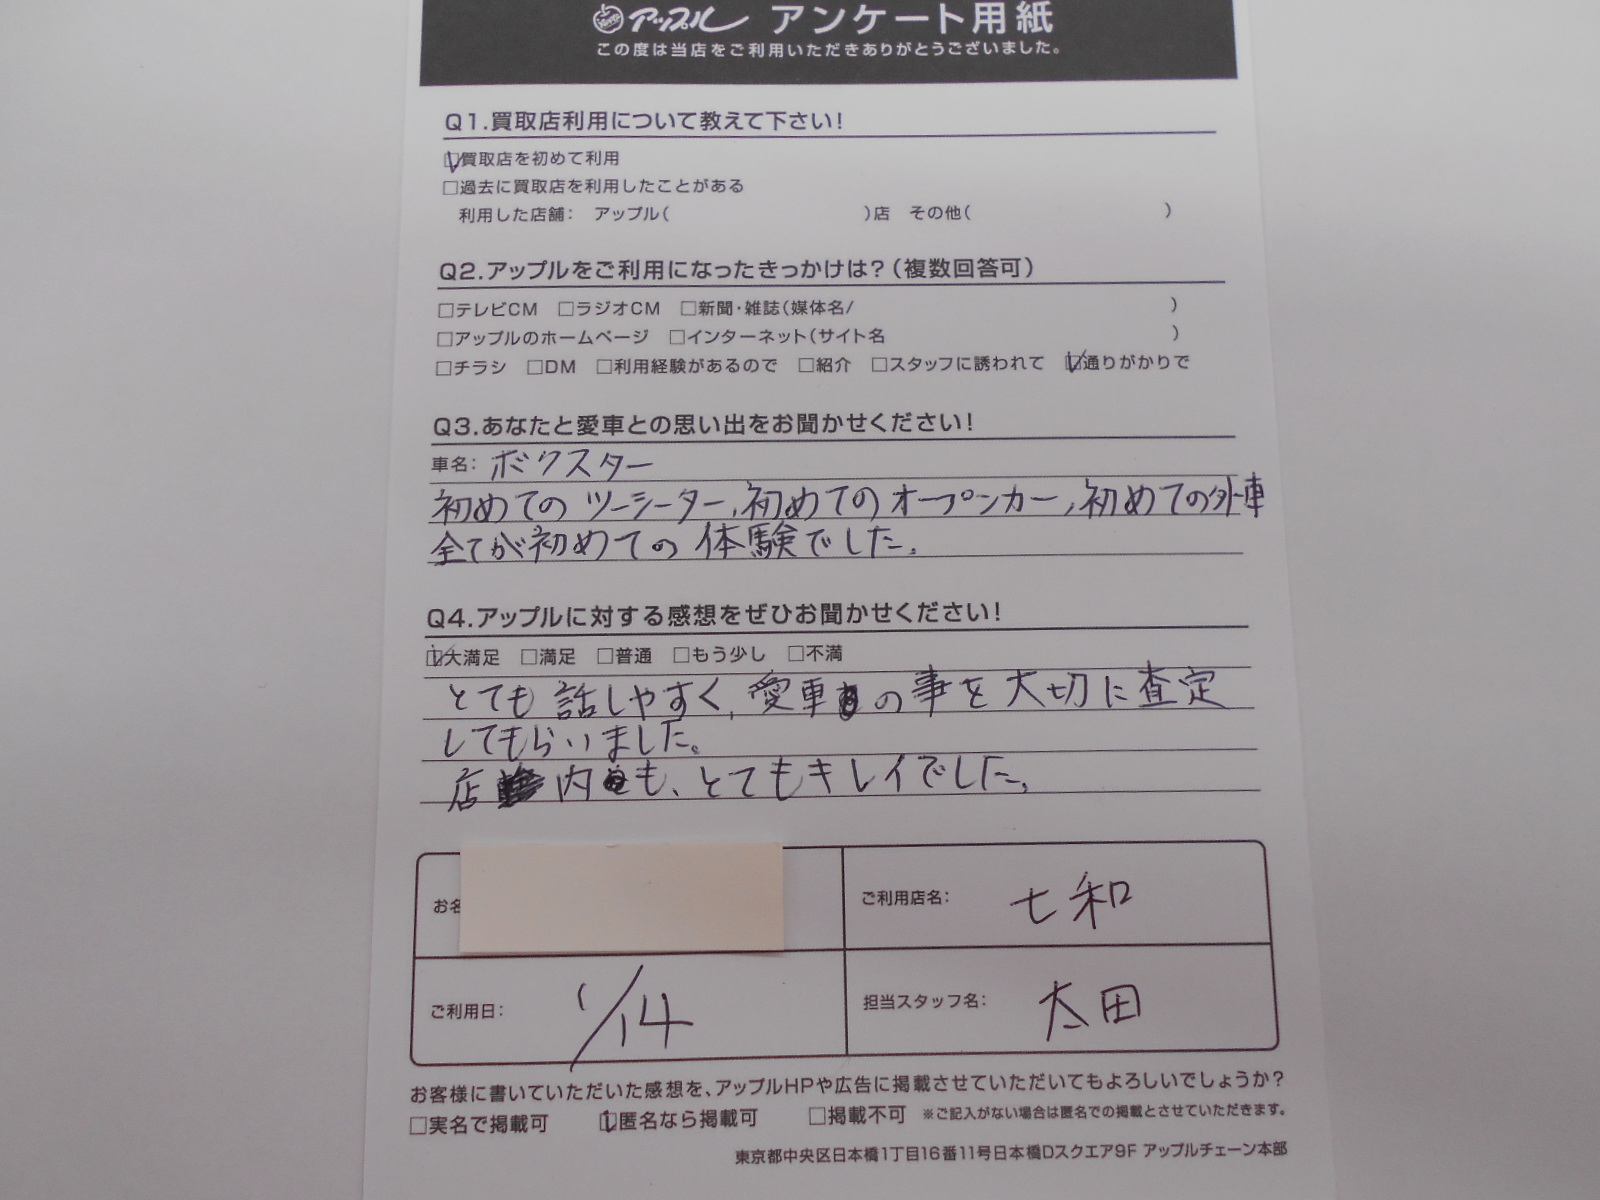 アップル アンケート用紙
この度は当店をご利用いただきありがとうございました。
Q1.買取店利用について教えて下さい!
☑買取店を初めて利用
□過去に買取店を利用したことがある
利用した店舗: アップル( )店 その他( )
Q2.アップルをご利用になったきっかけは?(複数回答可)
□テレビCM □ラジオCM □新聞・雑誌(媒体名/ )
□アップルのホームページ □インターネット(サイト名 )
□チラシ □DM □利用経験があるので □紹介 □スタッフに誘われて ☑通りがかりで
Q3.あなたと愛車との思い出をお聞かせください!
車名: ボクスター
初めてのツーシーター、初めてのオープンカー、初めての外車
全てが初めての体験でした。
Q4.アップルに対する感想をぜひお聞かせください!
☑大満足 □満足 □普通 □もう少し □不満
とても話しやすく、愛車の事を大切に査定
してもらいました。
店内も、とてもキレイでした。
お名
ご利用店名: 七和
ご利用日: 1/14
担当スタッフ名: 太田
お客様に書いていただいた感想を、アップルHPや広告に掲載させていただいてもよろしいでしょうか?
□実名で掲載可 ☑匿名なら掲載可 □掲載不可 ※ご記入がない場合は匿名での掲載とさせていただきます。
東京都中央区日本橋1丁目16番11号日本橋Dスクエア9F アップルチェーン本部